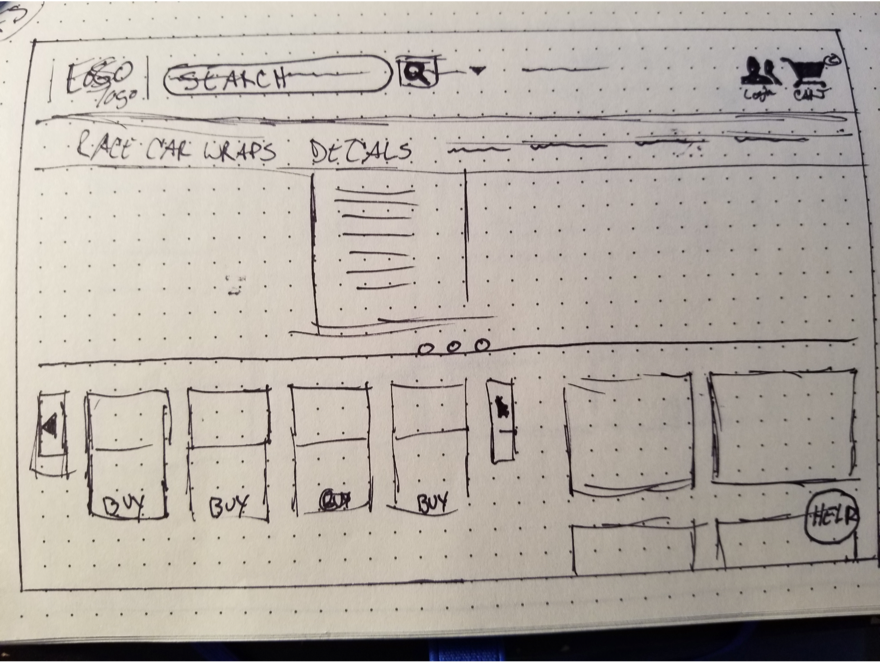 LOGO
logo
SEARCH
Login
CART
RACE CAR WRAPS DECALS
BUY BUY BUY BUY
HELP